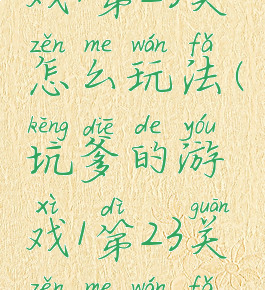 戏1第23关
zěn me wán fǎ
怎么玩法(
kēng diē de yóu
坑爹的游
xì dì guān
戏1第23关
zěn me wán fǎ